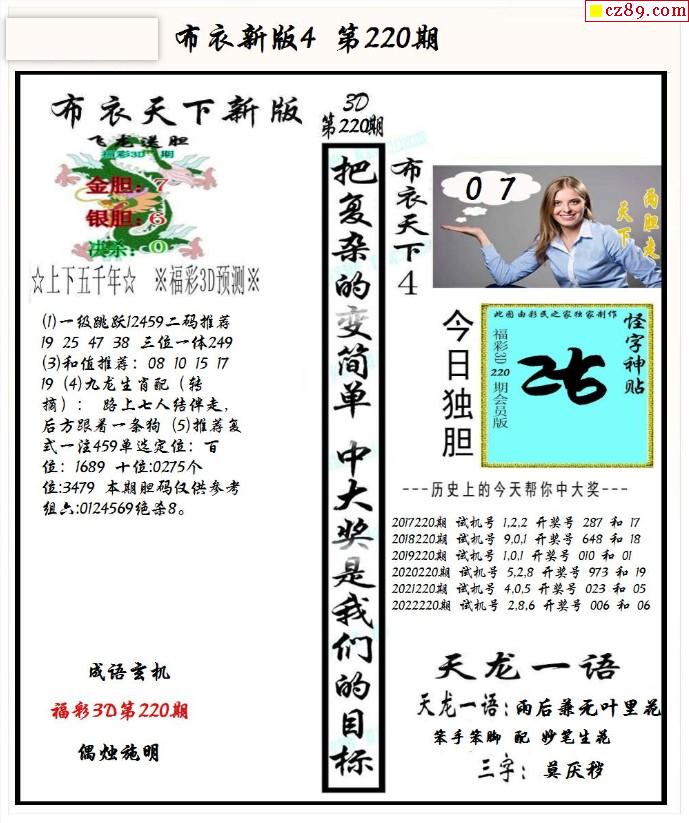 cz89.com
布衣新版4 第220期
布衣天下新版
飞龙送胆
福彩3D 期
金胆：7
银胆：6
决杀：0
☆上下五千年☆ ※福彩3D预测※
(1)一级跳跃12459二码推荐
19 25 47 38 三位一体249
(3)和值推荐：08 10 15 17
19 (4)九龙生肖配（转
摘）： 路上七人结伴走，
后方跟着一条狗 (5)推荐复
式一注459单选定位：百
位：1689 十位:0275个
位:3479 本期胆码仅供参考
组六:0124569绝杀8。
成语玄机
福彩3D第220期
偶烛施明
3D
第220期
把复杂的变简单 中大奖是我们的目标
布衣天下4
0 7
两胆走
天下
今日独胆
此图由彩民之家独家制作
福彩3D 220 期会员版
怪字神贴
---历史上的今天帮你中大奖---
2017220期 试机号 1,2,2 开奖号 287 和 17
2018220期 试机号 9,0,1 开奖号 648 和 18
2019220期 试机号 1,0,1 开奖号 010 和 01
2020220期 试机号 5,2,8 开奖号 973 和 19
2021220期 试机号 4,0,5 开奖号 023 和 05
2022220期 试机号 2,8,6 开奖号 006 和 06
天龙一语
天龙一语：雨后兼无叶里花
笨手笨脚 配 妙笔生花
三字： 莫厌秽